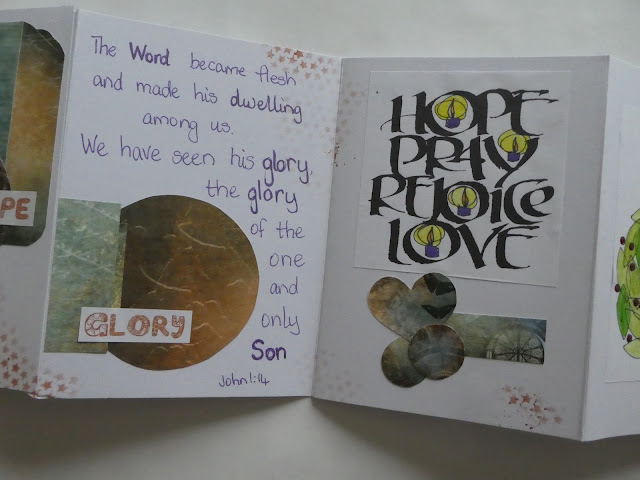 PE
The Word became flesh
and made his dwelling
among us.
We have seen his glory,
the glory
of the
one
and
only
Son
John 1:14
GLORY
HOPE
PRAY
REJOICE
LOVE